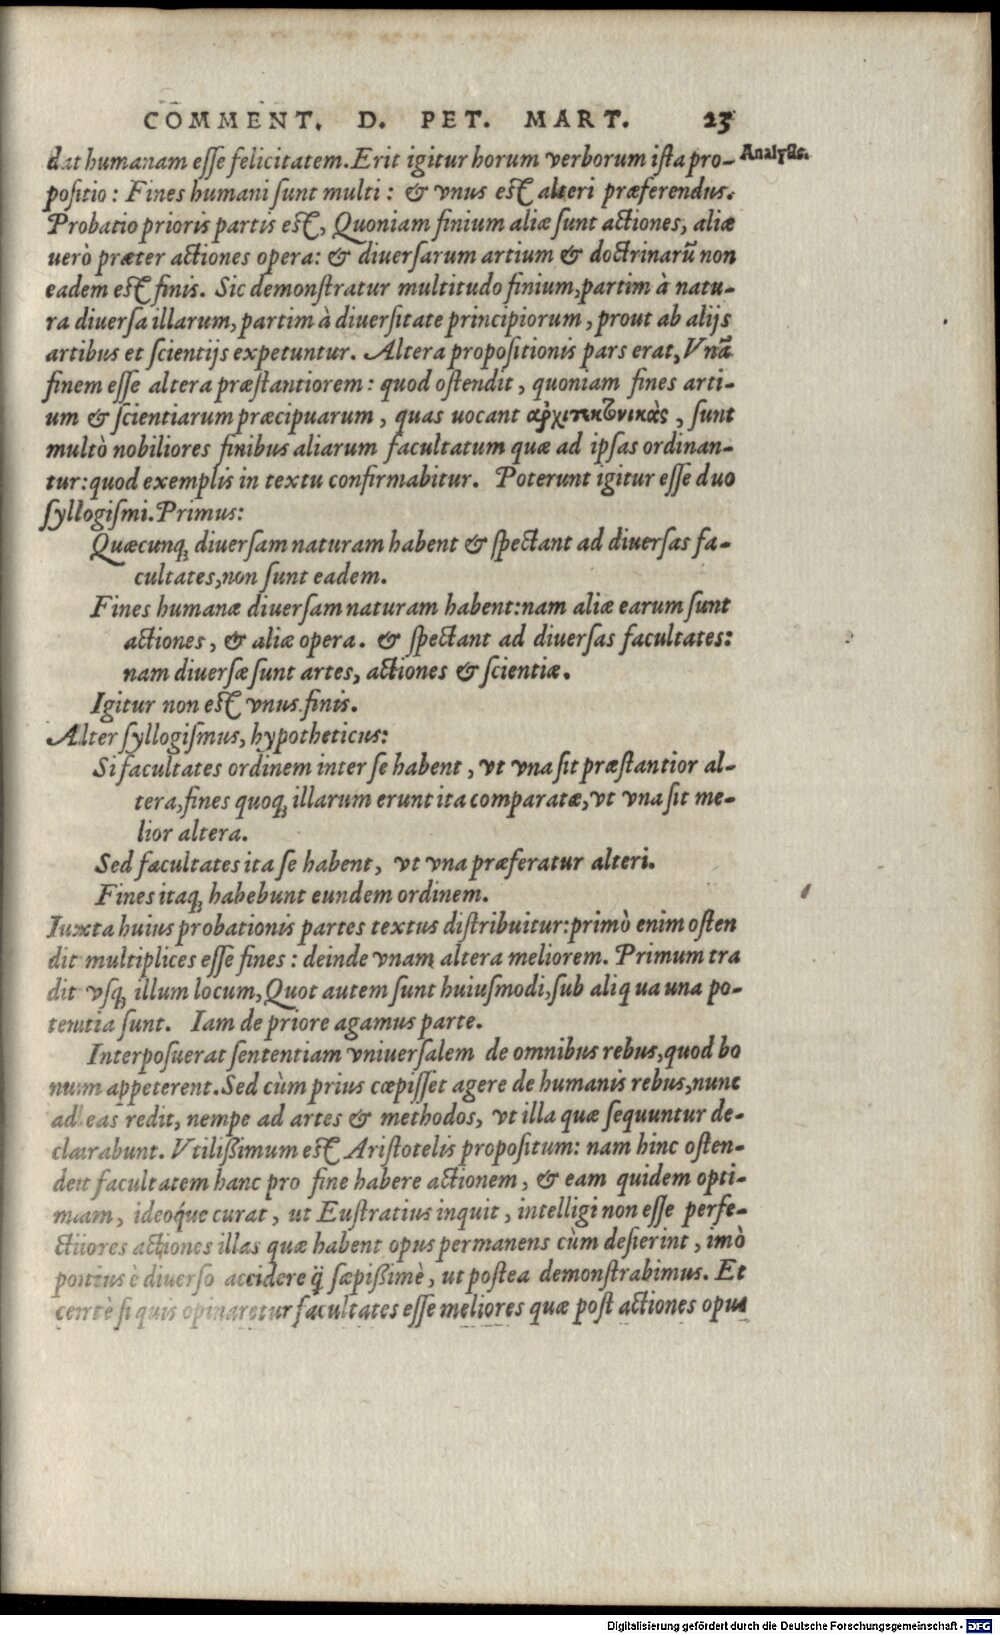 COMMENT. D. PET. MART. 23
dat humanam esse felicitatem. Erit igitur horum verborum ista pro- Analysis.
positio: Fines humani sunt multi: & vnus est alteri præferendus.
Probatio prioris partis est, Quoniam finium aliæ sunt actiones, aliæ
uerò præter actiones opera: & diuersarum artium & doctrinarū non
eadem est finis. Sic demonstratur multitudo finium, partim à natu-
ra diuersa illarum, partim à diuersitate principiorum, prout ab alijs
artibus et scientijs expetuntur. Altera propositionis pars erat, Vnā
finem esse altera præstantiorem: quod ostendit, quoniam fines arti-
um & scientiarum præcipuarum, quas uocant ἀρχιτεκτονικὰς, sunt
multò nobiliores finibus aliarum facultatum quæ ad ipsas ordinan-
tur: quod exemplis in textu confirmabitur. Poterunt igitur esse duo
syllogismi. Primus:
Quæcunq; diuersam naturam habent & spectant ad diuersas fa-
cultates, non sunt eadem.
Fines humanæ diuersam naturam habent: nam aliæ earum sunt
actiones, & aliæ opera. & spectant ad diuersas facultates:
nam diuersæ sunt artes, actiones & scientiæ.
Igitur non est vnus finis.
Alter syllogismus, hypotheticus:
Si facultates ordinem inter se habent, vt vna sit præstantior al-
tera, fines quoq; illarum erunt ita comparatæ, vt vna sit me-
lior altera.
Sed facultates ita se habent, vt vna præferatur alteri.
Fines itaq; habebunt eundem ordinem.
Iuxta huius probationis partes textus distribuitur: primò enim osten
dit multiplices esse fines: deinde vnam altera meliorem. Primum tra
dit vsq; illum locum, Quot autem sunt huiusmodi, sub aliqua una po-
tentia sunt. Iam de priore agamus parte.
Interposuerat sententiam vniuersalem de omnibus rebus, quod bo
num appeterent. Sed cùm prius cœpisset agere de humanis rebus, nunc
ad eas redit, nempe ad artes & methodos, vt illa quæ sequuntur de-
clarabunt. Vtilißimum est Aristotelis propositum: nam hinc osten-
det facultatem hanc pro fine habere actionem, & eam quidem opti-
mam, ideoq́ue curat, ut Eustratius inquit, intelligi non esse perfe-
ctiores actiones illas quæ habent opus permanens cùm desierint, imò
potius è diuerso accidere q̃ sæpißimè, ut postea demonstrabimus. Et
certè si quis opinaretur facultates esse meliores quæ post actiones opus
Digitalisierung gefördert durch die Deutsche Forschungsgemeinschaft - DFG